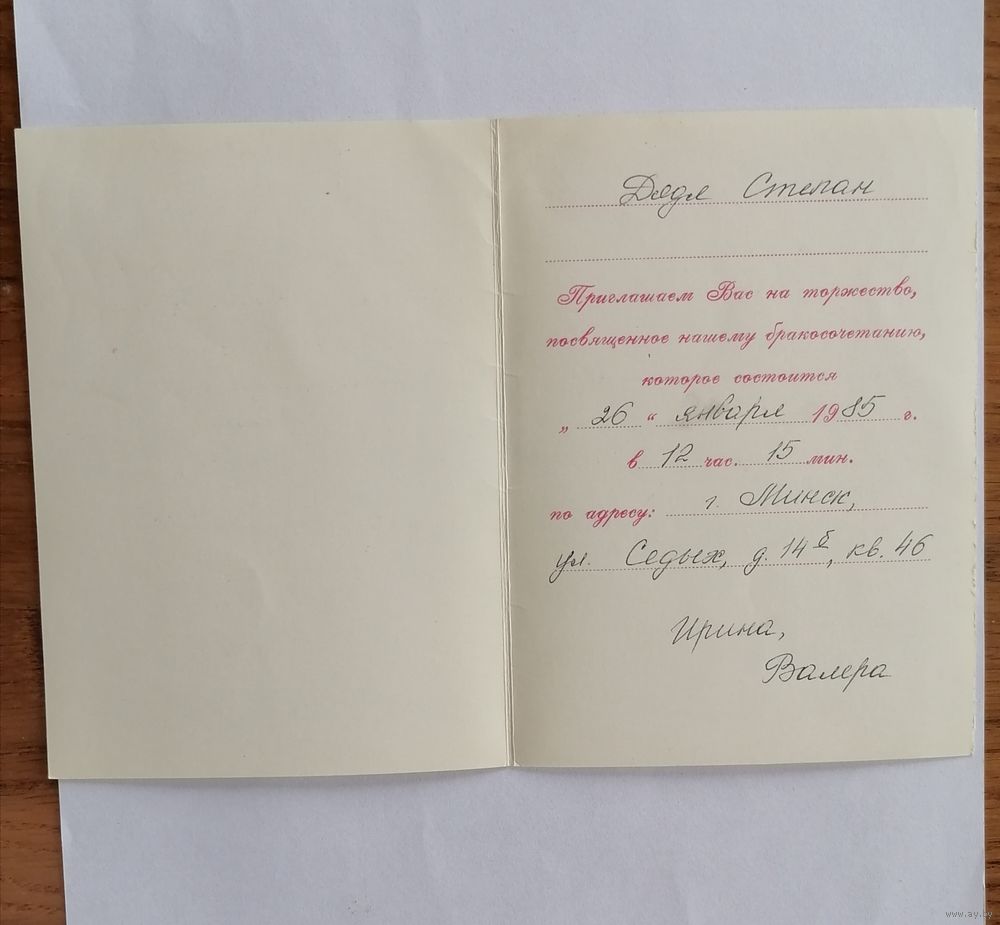 Дядя Степан
Приглашаем Вас на торжество,
посвященное нашему бракосочетанию,
которое состоится
„ 26 “ января 1985 г.
в 12 час. 15 мин.
по адресу: г. Минск,
ул. Седых, д. 14 б, кв. 46
Ирина,
Валера
www.ay.by